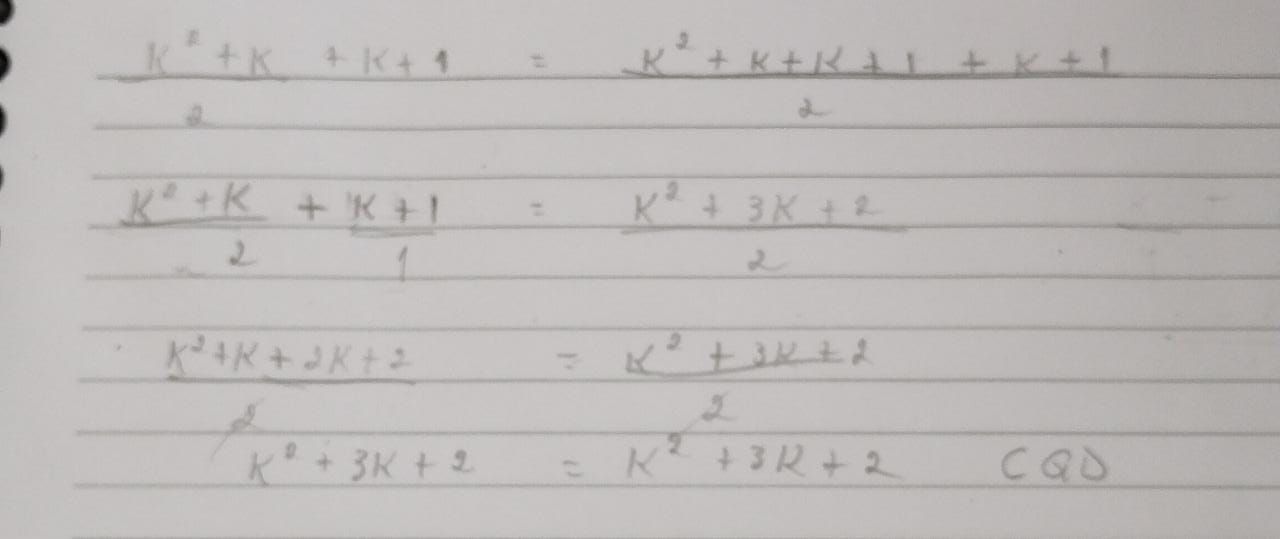 K² + K + K + 1 = K² + K + K + 1 + K + 1
2 2
K² + K + K + 1 = K² + 3K + 2
2 1 2
K² + K + 2K + 2 = K² + 3K + 2
2 2
K² + 3K + 2 = K² + 3K + 2 CQD